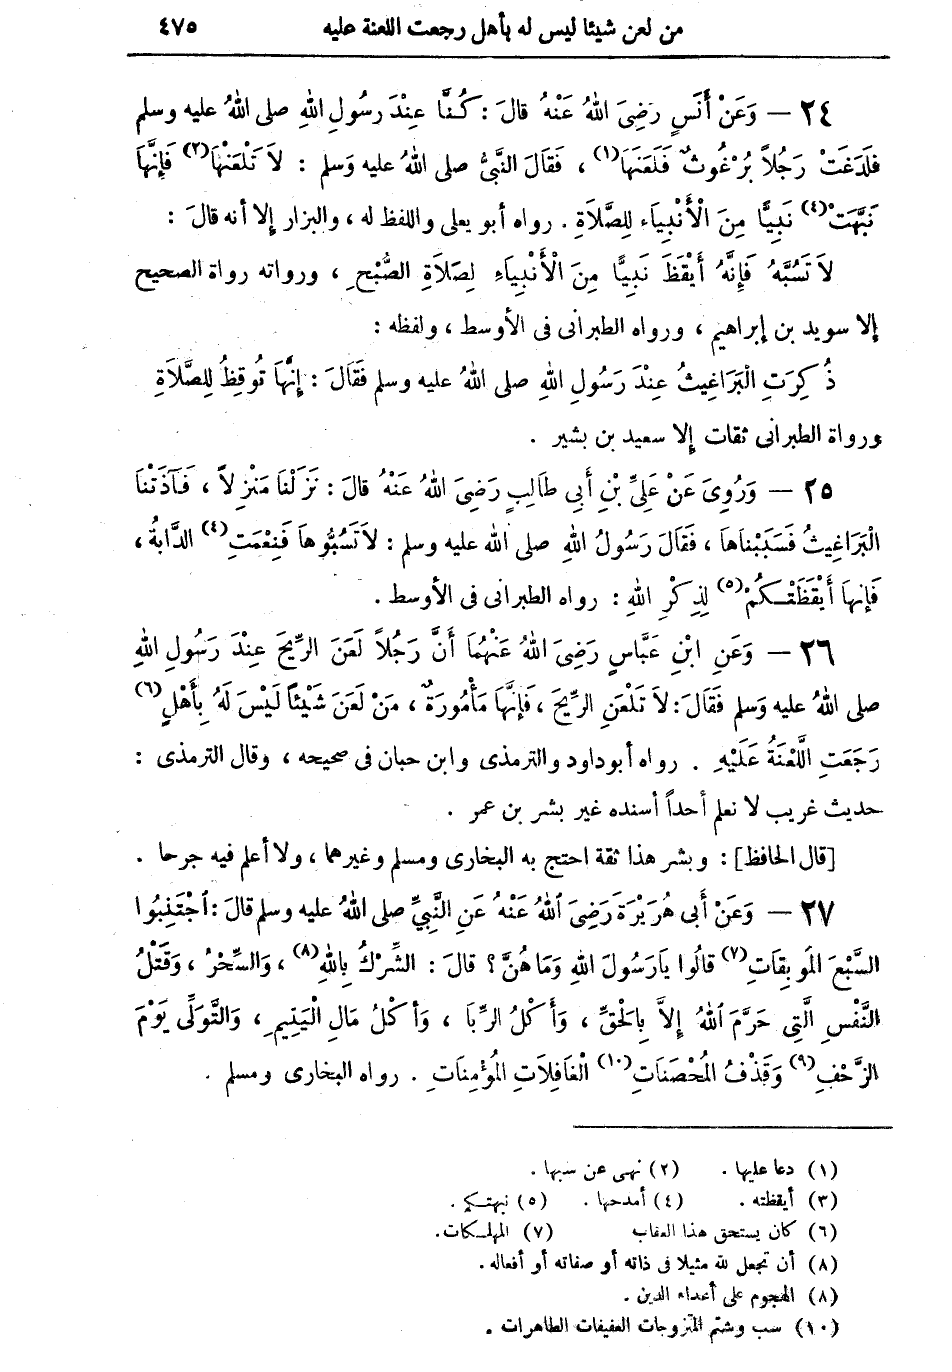 من لعن شيئا ليس له بأهل رجعت اللعنة عليه ٤٧٥
٢٤ — وَعَنْ أَنَسٍ رَضِىَ اللهُ عَنْهُ قالَ : كُنَّا عِنْدَ رَسُولِ اللهِ صلى اللهُ عليه وسلم
فَلَدَغَتْ رَجُلاً بُرْغُوثٌ فَلَعَنَهَا(١) ، فَقَالَ النَّبِىُّ صلى اللهُ عليه وَسلم : لاَ تَلْعَنْهَا(٢) فَإِنَّهَا
نَبَّهَتْ(٤) نَبِيًّا مِنَ الْأَنْبِيَاءِ لِلصَّلاَةِ . رواه أبو يعلى واللفظ له ، والبزار إلا أنه قالَ :
لاَ تَسُبَّهُ فَإِنَّهُ أَيْقَظَ نَبِيًّا مِنَ الْأَنْبِيَاءِ لِصَلاَةِ الصُّبْحِ ، ورواته رواة الصحيح
إلا سويد بن إبراهيم ، ورواه الطبرانى فى الأوسط ، ولفظه :
ذُكِرَتِ الْبَرَاغِيثُ عِنْدَ رَسُولِ اللهِ صلى اللهُ عليه وسلم فَقَالَ : إِنَّهَا تُوقِظُ لِلصَّلاَةِ
ورواة الطبرانى ثقات إلا سعيد بن بشير .
٢٥ — وَرُوِىَ عَنْ عَلِيِّ بْنِ أَبِى طَالِبٍ رَضِىَ اللهُ عَنْهُ قالَ : نَزَلْنَا مَنْزِلاً ، فَآذَتْنَا
الْبَرَاغِيثُ فَسَبَبْنَاهَا ، فَقَالَ رَسُولُ اللهِ صلى الله عليه وسلم : لاَتَسُبُّوهَا فَنِعْمَتِ(٤) الدَّابَةُ ،
فَإِنهَا أَيْقَظَتْكُمْ(٥) لِذِكْرِ اللهِ : رواه الطبرانى فى الأوسط .
٢٦ — وَعَنِ ابْنِ عَبَّاسٍ رَضِىَ اللهُ عَنْهُمَا أَنَّ رَجُلاً لَعَنَ الرِّيحَ عِنْدَ رَسُولِ اللهِ
صلى اللهُ عليه وَسلم فَقَالَ : لاَ تَلْعَنِ الرِّيحَ ، فَإِنَّهَا مَأْمُورَةٌ ، مَنْ لَعَنَ شَيْئاً لَيْسَ لَهُ بِأَهْلٍ(٦)
رَجَعَتِ اللَّعْنَةُ عَلَيْهِ . رواه أبوداود والترمذى وابن حبان فى صحيحه ، وقال الترمذى :
حديث غريب لا نعلم أحداً أسنده غير بشر بن عمر .
[قال الحافظ] : وبشر هذا ثقة احتج به البخارى ومسلم وغيرهما ، ولا أعلم فيه جرحا .
٢٧ — وَعَنْ أَبى هُرَيْرَةَ رَضِىَ اللهُ عَنْهُ عَنِ النَّبِىِّ صلى اللهُ عليه وسلم قالَ : اجْتَنِبُوا
السَّبْعَ المُوبِقَاتِ(٧) قالُوا يَارَسُولَ اللهِ وَمَا هُنَّ ؟ قالَ : الشِّرْكُ بِاللهِ(٨) ، وَالسِّحْرُ ، وَقَتْلُ
النَّفْسِ الَّتِى حَرَّمَ اللهُ إِلاَّ بِالحَقِّ ، وَأَكْلُ الرِّبَا ، وَأَكْلُ مَالِ الْيَتِيمِ ، وَالتَّوَلِّى يَوْمَ
الزَّحْفِ(٩) وَقَذْفُ المُحْصَنَاتِ(١٠) الْغَافِلاَتِ المُؤْمِنَاتِ . رواه البخارى ومسلم .
(١) دعا عليها . (٢) نهى عن سبها .
(٣) أيقظته . (٤) أمدحها . (٥) نبهتكم .
(٦) كان يستحق هذا العقاب (٧) المهلكات.
(٨) أن تجعل لله مثيلا فى ذاته أو صفاته أو أفعاله.
(٨) الهجوم على أعداء الدين .
(١٠) سب وشتم المتزوجات العفيفات الطاهرات .